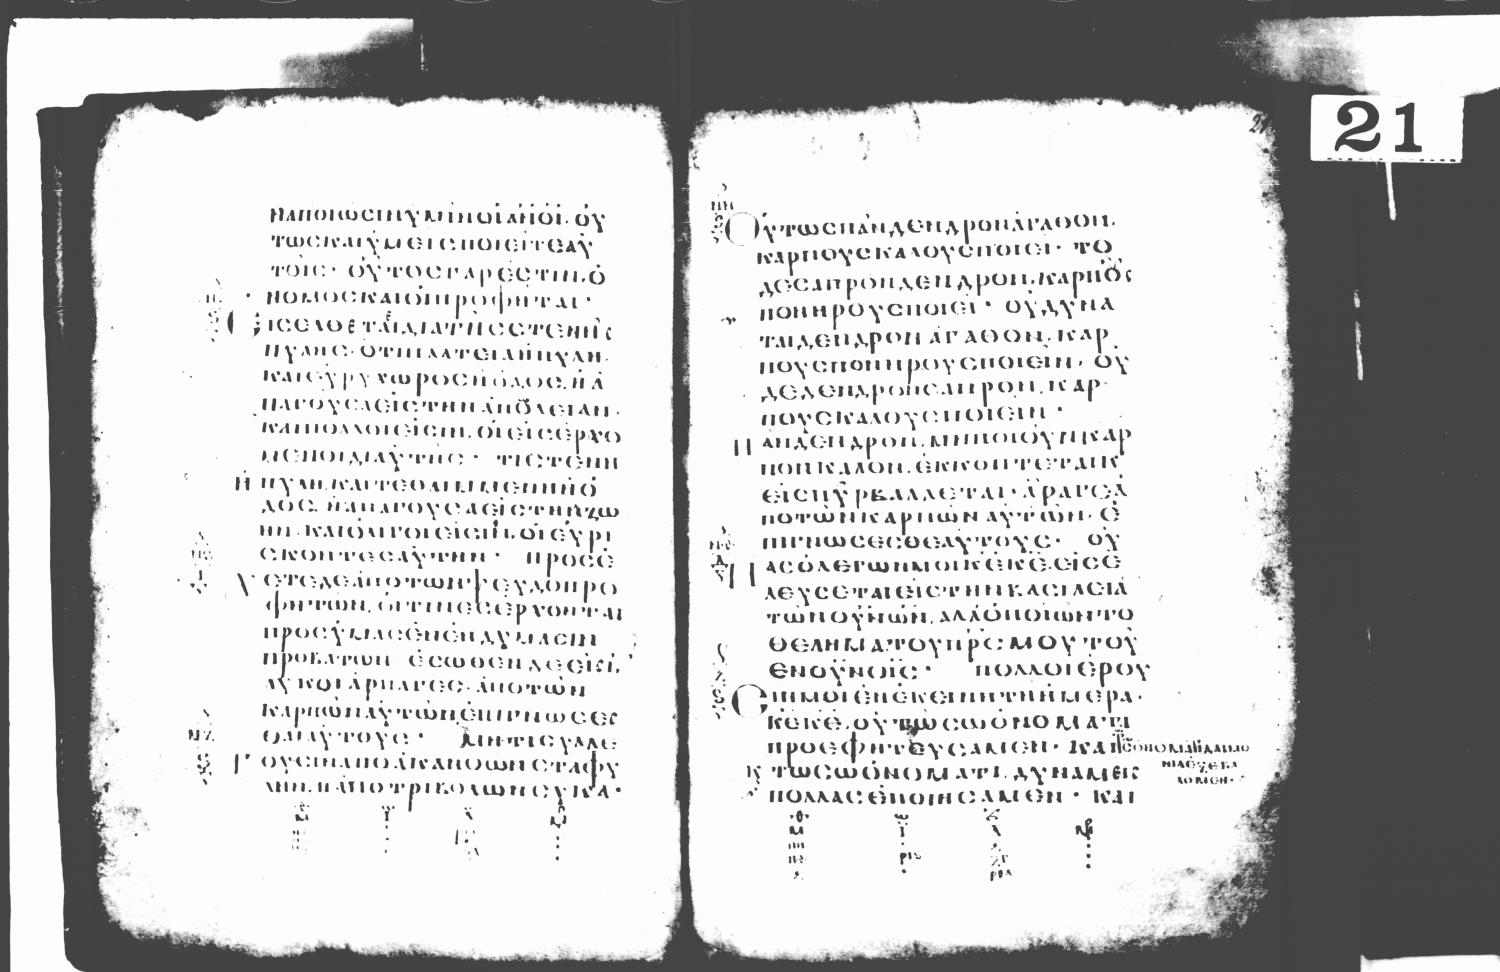 ΝΑΠΟΙΩCΙΝΥΜΙΝΟΙΑΝΟΙ· ΟΥ
ΤΩCΚΑΙΥΜΕΙCΠΟΙΕΙΤΕΑΥ
ΤΟΙC· ΟΥΤΟCΓΑΡΕCΤΙΝ·Ο
ΝΟΜΟCΚΑΙΟΙΠΡΟΦΗΤΑΙ·
ΕΙCΕΛΘΕΤΑΙΔΙΑΤΗCCΤΕΝΗC
ΠΥΛΗC·ΟΤΙΠΛΑΤΕΙΑΗΠΥΛΗ·
ΚΑΙΕΥΡΥΧΩΡΟCΗΟΔΟC·ΗΑ
ΠΑΓΟΥCΑΕΙCΤΗΝΑΠΩΛΕΙΑΝ·
ΚΑΙΠΟΛΛΟΙΕΙCΙΝ·ΟΙΕΙCΕΡΧΟ
ΜΕΝΟΙΔΙΑΥΤΗC· ΤΙCΤΕΝΗ
ΗΠΥΛΗ·ΚΑΙΤΕΘΛΙΜΜΕΝΗΗΟ
ΔΟC·ΗΑΠΑΓΟΥCΑΕΙCΤΗΝΖΩ
ΗΝ·ΚΑΙΟΛΙΓΟΙΕΙCΙΝ·ΟΙΕΥΡΙ
CΚΟΝΤΕCΑΥΤΗΝ· ΠΡΟCΕ
ΧΕΤΕΔΕΑΠΟΤΩΝΨΕΥΔΟΠΡΟ
ΦΗΤΩΝ·ΟΙΤΙΝΕCΕΡΧΟΝΤΑΙ
ΠΡΟCΥΜΑCΕΝΕΝΔΥΜΑCΙΝ
ΠΡΟΒΑΤΩΝ ΕCΩΘΕΝΔΕΕΙCΙ·
ΛΥΚΟΙΑΡΠΑΓΕC·ΑΠΟΤΩΝ
ΚΑΡΠΩΝΑΥΤΩΝΕΠΙΓΝΩCΕC
ΘΑΙΑΥΤΟΥC· ΜΗΤΙCΥΛΛΕ
ΓΟΥCΙΝΑΠΟΑΚΑΝΘΩΝCΤΑΦΥ
ΛΗΝ·ΗΑΠΟΤΡΙΒΟΛΩΝCΥΚΑ·
ΟΥΤΩCΠΑΝΔΕΝΔΡΟΝΑΓΑΘΟΝ·
ΚΑΡΠΟΥCΚΑΛΟΥCΠΟΙΕΙ· ΤΟ
ΔΕCΑΠΡΟΝΔΕΝΔΡΟΝ·ΚΑΡΠΟΥC
ΠΟΝΗΡΟΥCΠΟΙΕΙ· ΟΥΔΥΝΑ
ΤΑΙΔΕΝΔΡΟΝΑΓΑΘΟΝ·ΚΑΡ
ΠΟΥCΠΟΝΗΡΟΥCΠΟΙΕΙΝ· ΟΥ
ΔΕΔΕΝΔΡΟΝCΑΠΡΟΝ·ΚΑΡ
ΠΟΥCΚΑΛΟΥCΠΟΙΕΙΝ·
ΠΑΝΔΕΝΔΡΟΝ·ΜΗΠΟΙΟΥΝΚΑΡ
ΠΟΝΚΑΛΟΝ·ΕΚΚΟΠΤΕΤΑΙΚ
ΕΙCΠΥΡΒΑΛΛΕΤΑΙ·ΑΡΑΓΕΑ
ΠΟΤΩΝΚΑΡΠΩΝΑΥΤΩΝ·Ε
ΠΙΓΝΩCΕCΘΕΑΥΤΟΥC· ΟΥ
ΠΑCΟΛΕΓΩΝΜΟΙΚΕΚΕ·ΕΙCΕ
ΛΕΥCΕΤΑΙΕΙCΤΗΝΒΑCΙΛΕΙΑ
ΤΩΝΟΥΝΩΝ·ΑΛΛΟΠΟΙΩΝΤΟ
ΘΕΛΗΜΑΤΟΥΠΡCΜΟΥΤΟΥ
ΕΝΟΥΝΟΙC· ΠΟΛΛΟΙΕΡΟΥ
CΙΝΜΟΙΕΝΕΚΕΙΝΗΤΗΗΜΕΡΑ·
ΚΕΚΕ·ΟΥΤΩCΩΟΝΟΜΑΤΙ
ΠΡΟΕΦΗΤΕΥCΑΜΕΝ· ΚΑΙΤΩCΩΟΝΟΜΑΤΙΔΑΙΜΟ
ΝΙΑΕΞΕΒΑ
ΛΟΜΕΝ·
ΤΩCΩΟΝΟΜΑΤΙ·ΔΥΝΑΜΕΙC
ΠΟΛΛΑCΕΠΟΙΗCΑΜΕΝ· ΚΑΙ
21